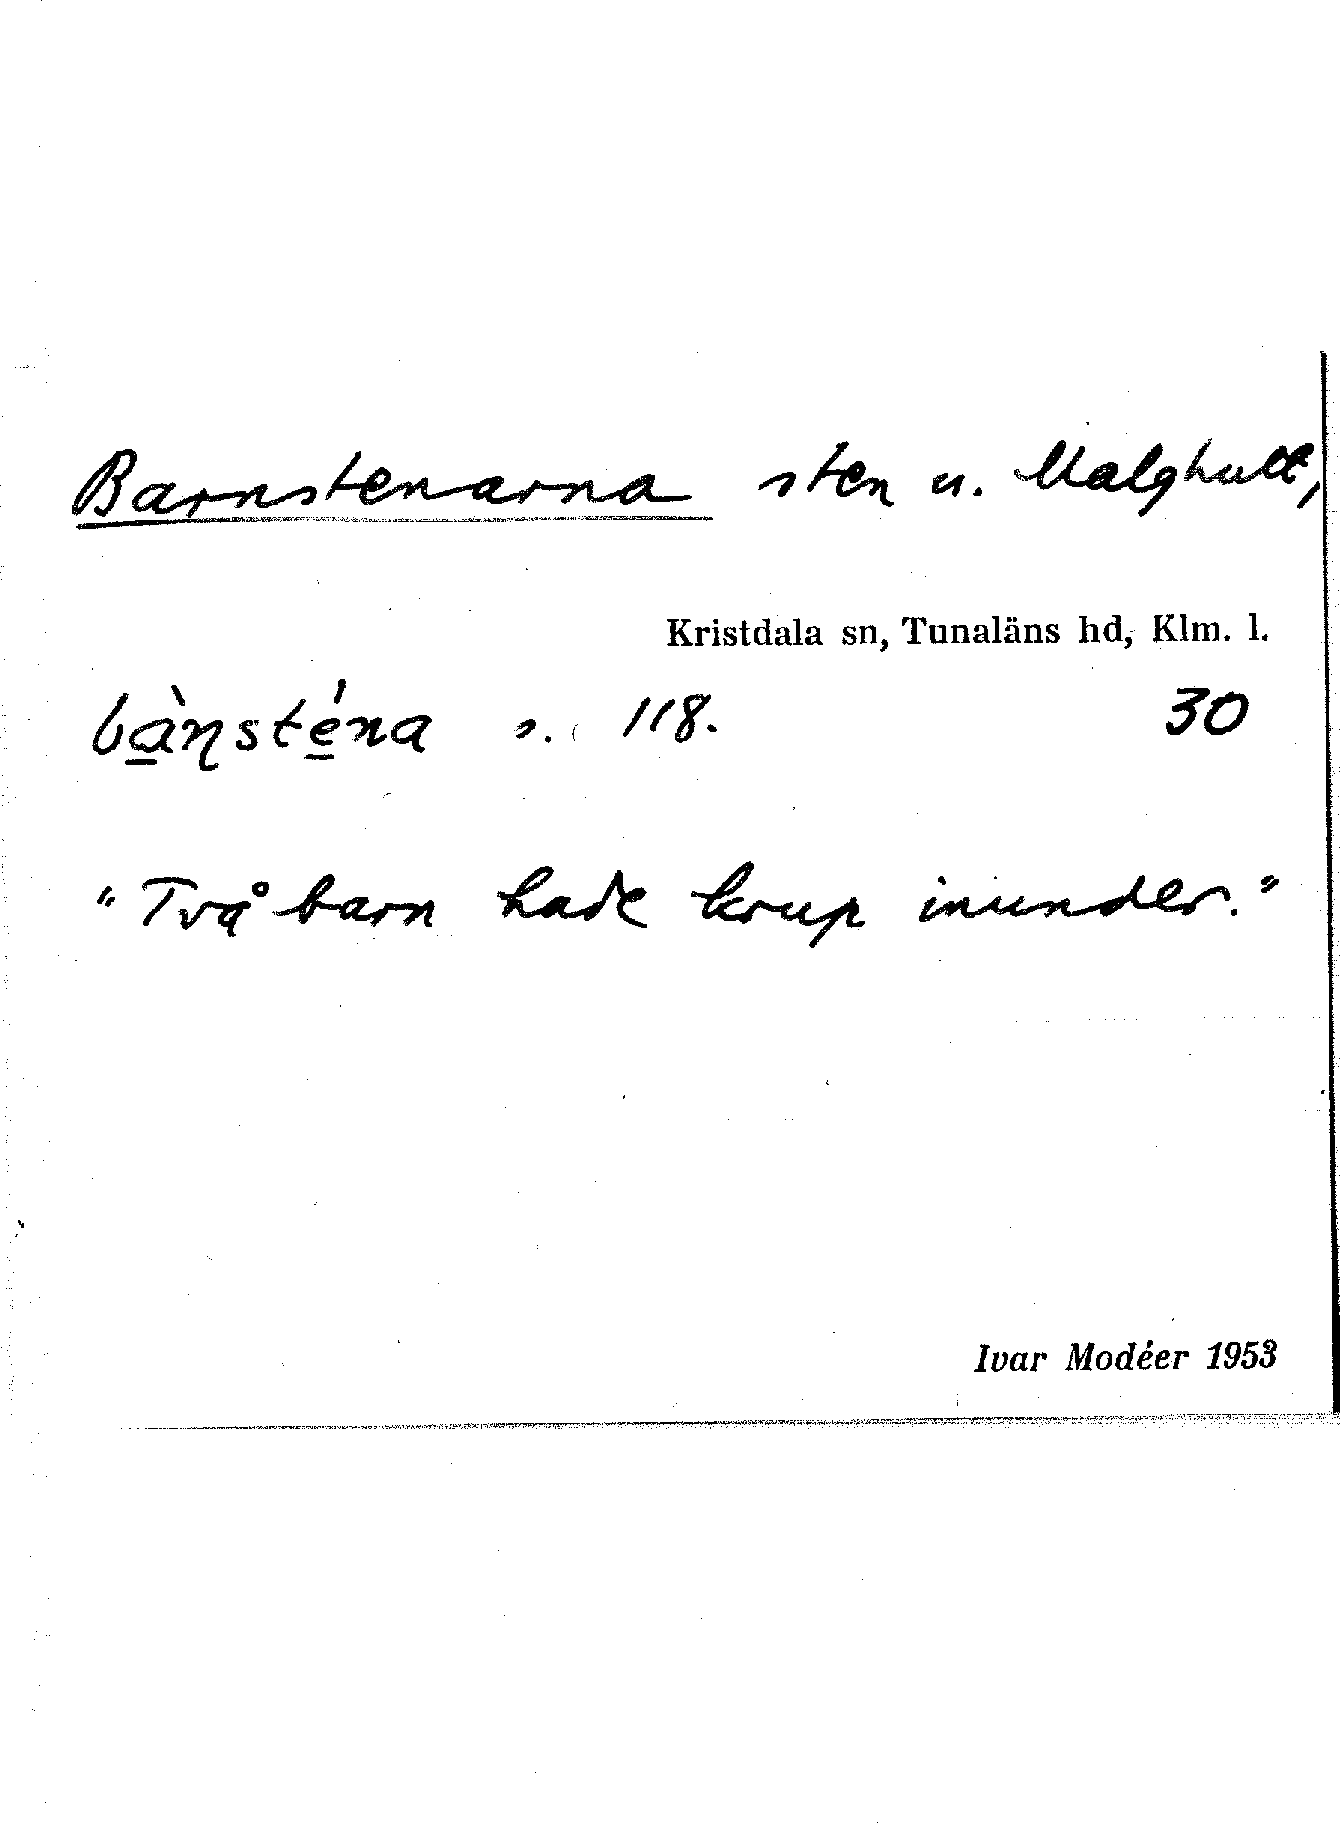 Barnstenarna sten u. Malghult,
Kristdala sn, Tunaläns hd, Klm. l.
bàɳsténa s. 118. 30
"Två barn hade krup inunder."
Ivar Modéer 1953